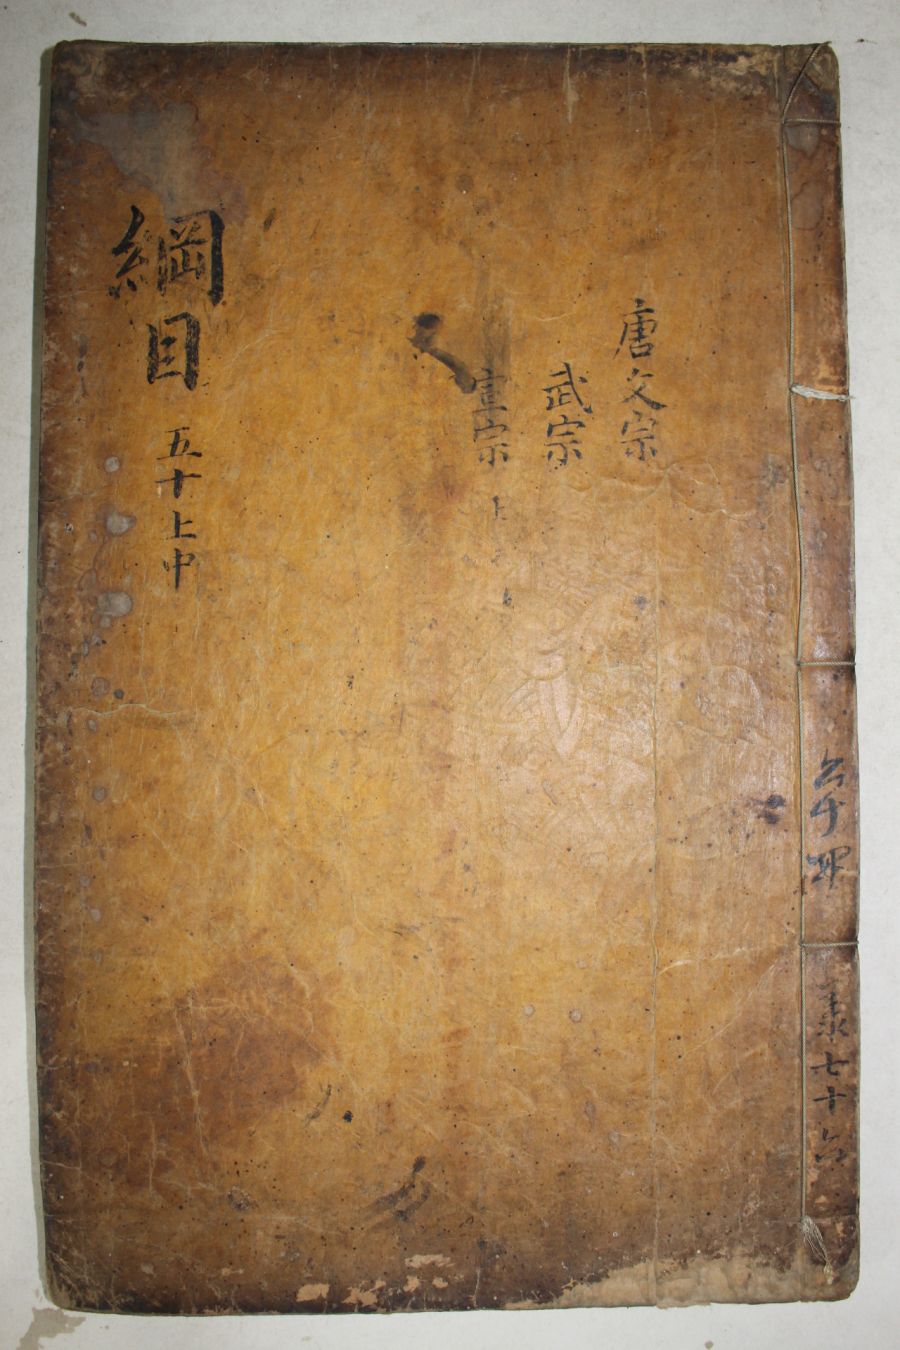 唐文宗
武宗
宣宗
上
綱目
五十上中
七十六